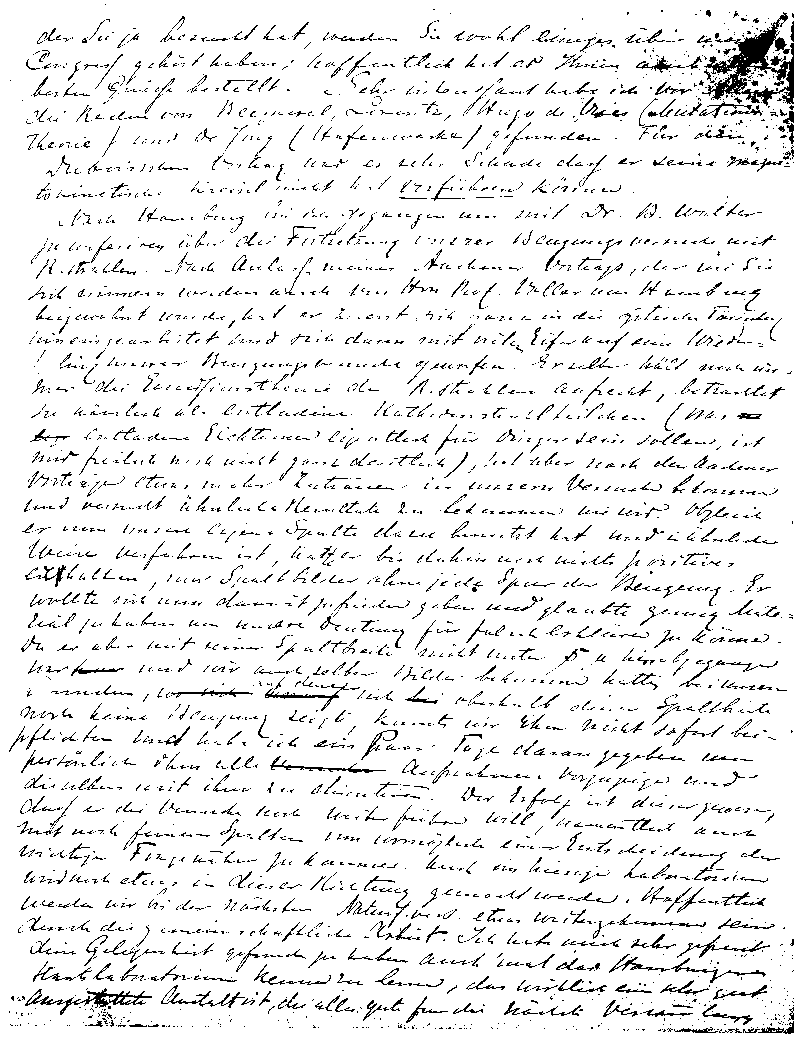 der Sie ja besucht hat, werden Sie wohl einiges über
Congress gehört haben; hoffentlich hat er Ihnen auch
besten Grüsse bestellt. Sehr interessant habe ich
die Reden von Becquerel, Lorentz, Hugo de Vries (Mutations-
theorie) und Dr Jong (Hafenwerke) gefunden. Für den
Dubois'schen Vortrag war es sehr Schade dass er seine
Kreisel nicht hat vorführen können.
Nach Hamburg bin ich gegangen um mit Dr. B. Walter
zu conferiren über die Fortsetzung unserer Beugungsversuche mit
R.strahlen. Nach Anlass meines Aachener Vortrags, der wie Sie
sich erinnern werden auch von Hrn Prof. Voller aus Hamburg
beigewohnt wurde, hat er zuerst sich
hineingearbeitet und sich dann mit Eifer auf eine Wieder-
unserer Beugungsversuche geworfen. Er selber hält noch im-
mer die Emissionstheorie der R.strahlen aufrecht, betrachtet
sie nämlich als entladene Kathodenstrahlteilchen (was
entladene Elektronen eigentlich für Dinger sein sollen, ist
mir freilich noch nicht ganz deutlich), hat aber nach dem Aachener
Vortrage etwas mehr Zutrauen in unseren Versuchen bekommen
und versucht ähnliche Resultate zu bekommen wie wir. Obgleich
er nun unsere eigene Spalte dazu benutzt hat und in ähnlicher
Weise verfahren ist, hatte er bis dahin noch nichts positives
erhalten, nur Spaltbilder ohne jede Spur der Beugung. Er
wollte sich nun damit zufrieden geben und glaubte genug Mate-
rial zu haben um unsere Deutung für falsch erklären zu können.
Da er aber mit seiner Spaltbreite nicht unter μ hinabgegangen
war und wir auch selber Bilder bekommen hatten bei unseren
und oberhalb dieser Spaltbreite
noch keine Beugung zeigt, konnte wir Ihm nicht sofort bei-
pflichten und habe ich ein Paar Tage daran gegeben um
persönlich ihm alle Aufnahmen vorzuzeigen und
dieselben mit ihm zu discutiren. Der Erfolg ist dieser gewesen,
dass er die Versuche noch weiter führen will, namentlich auch
mit noch feineren Spalten um womöglich einer Entscheidung der
wichtigen Frage näher zu kommen. Auch im hiesigen Laboratorium
wird noch etwas in dieser Richtung gemacht werden. Hoffentlich
werden wir bis der nächsten Naturf. vers. etwas weitergekommen sein
durch die gemeinschaftliche Arbeit. Ich habe mich sehr gefreut
die Gelegenheit gefunden zu haben auch 'mal das Hamburger
Staatslaboratorium kennen zu lernen, das wirklich ein sehr gut
ausgestattete Anstalt ist, die alles gute für die nächste Versammlung